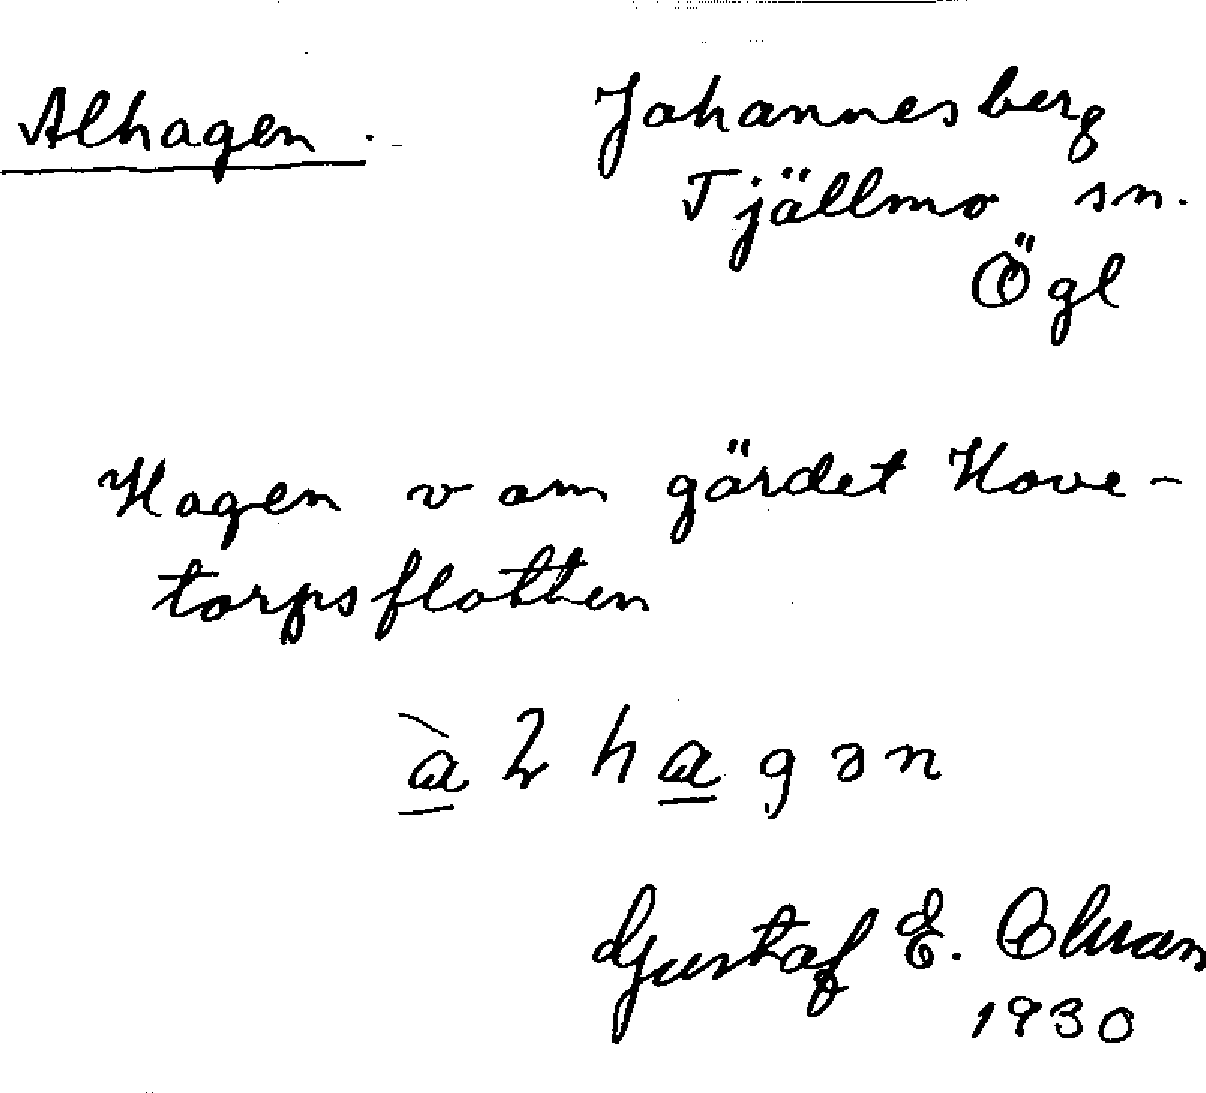 Alhagen.
Johannesberg
Tjällmo sn.
Ögl
Hagen v om gärdet Hove-
torpsflotten
Gustaf E. Olsson
1930